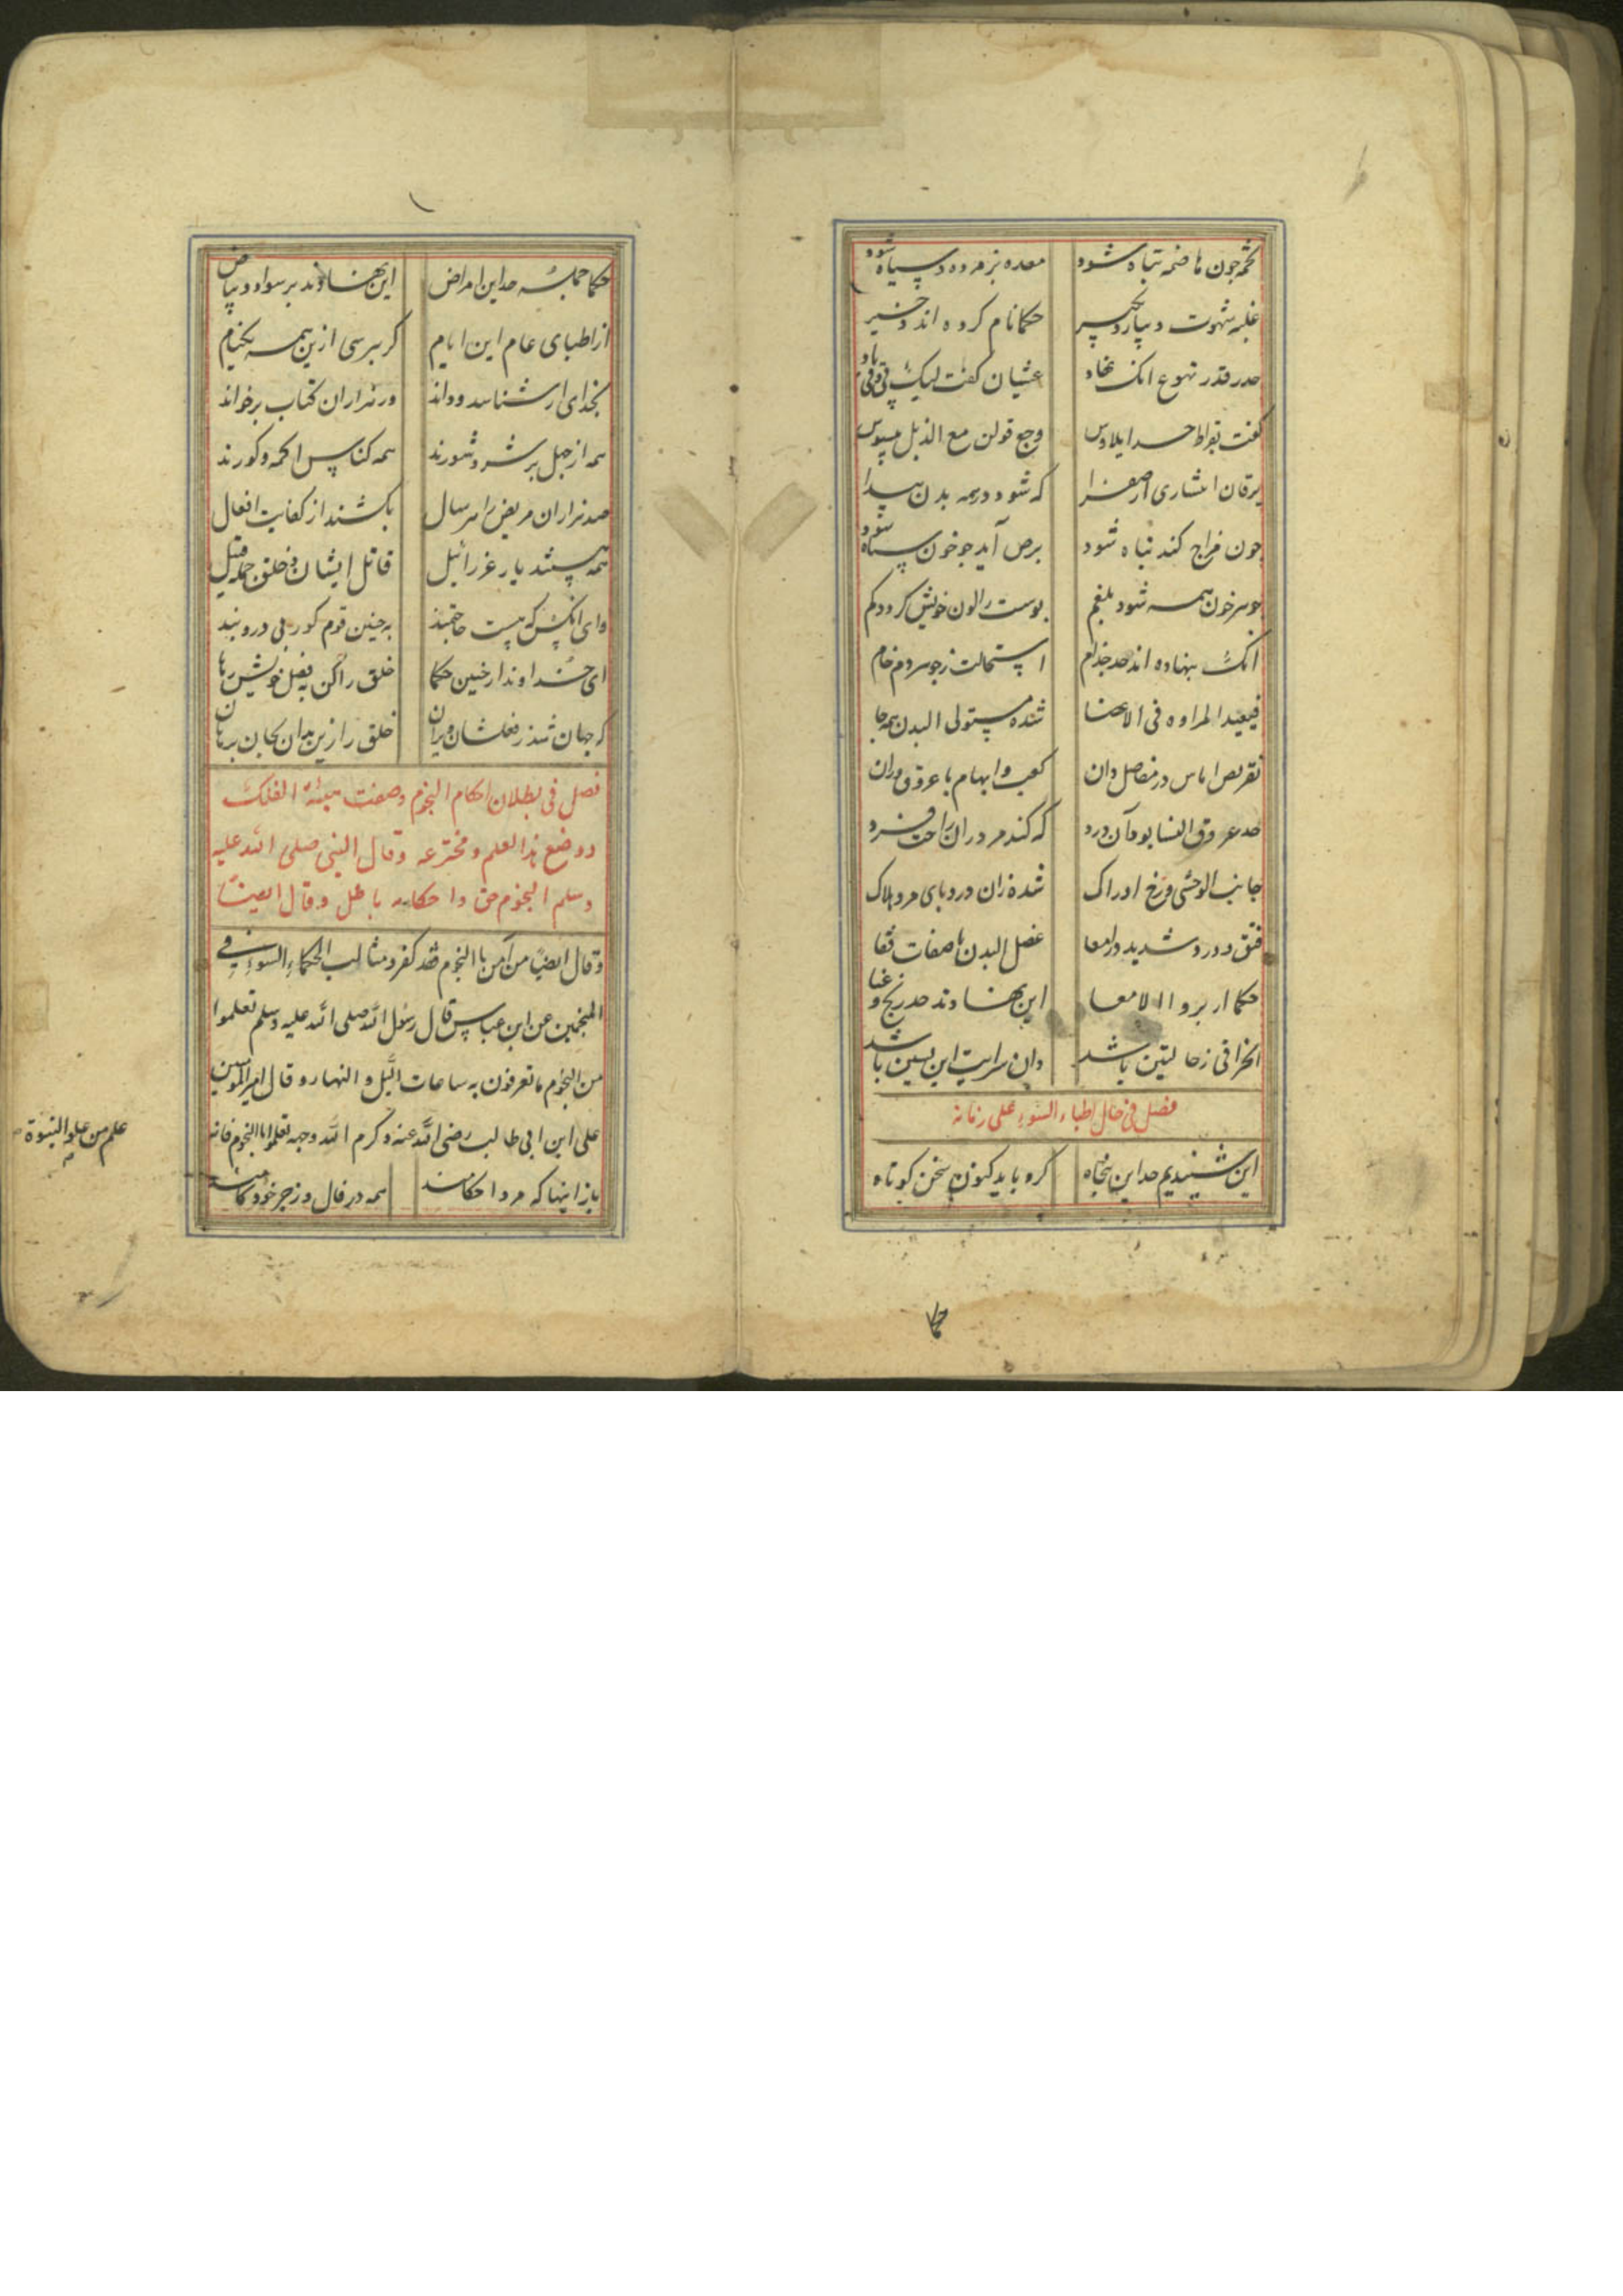 تخمه چون هاضمه تباه شود معده پژمرده و سیاه شود
غلبه شهوت و حکما نام کرده اند
حد قذر تهوع انک غثیان گفت لیک
گفت بقراط حد ایلاوس وجع قولن مع الذبل
یرقان انتشاری از صفرا که شود در همه بدن پیدا
چون مزاج کبد تباه شود برص آید چو خون سیاه شود
جوهر خون همه شود بلغم پوست را لون خویش کردد کم
انک بنهاده اند حد جذام استحالت ز جوهر دم خام
فیعید المراوه فی الاعضا شده مستولی البدن همه جا
نقرس اماس در مفاصل دان کعب و ابهام با عروق وران
حد عرق النسا بود آن درد که کند مرد را ز راحت فرد
جانب الوحشی و رخ ادراک شده زان درد پای مرد هلاک
فتق و درد شدید و امعا عضل البدن با صفات قفا
حکما از برو الامعا این نهادند حد رنج و عنا
انحرافی ز حالتین باشد وان سرایت این باشد
فصل فی حال اطباء السوء علی زمانه
این شنیدیم حد این پنجاه کرد باید کنون سخن کوتاه
حکما
حکما جمله حد این امراض این نهادند بر سواد و بیاض
از اطبای عام این ایام کر بپرسی ازین همه یکنام
بخدای ار شناسد و داند ور هزاران کتاب برخواند
همه از جهل پر شر و شورند همه کناس اکمه و کورند
صد هزاران مریض را هر سال بکشند از کفایت افعال
همه هستند یار عزرائیل قاتل ایشان و خلق جمله قتیل
وای انکس که هست حاجتمند به چنین قوم کور بی در و بند
ای خداوند از چنین حکما خلق را کن به فضل خویش رها
که جهان شد ز فعلشان ویران خلق را زین بدان بجان برهان
فصل فی بطلان احکام النجوم وصفت هیئة الفلک
و وضع هذا العلم و مخترعه وقال النبی صلی الله علیه
وسلم النجوم حق و احکامه باطل وقال ایضا
وقال ایضا من آمن باالنجوم فقد کفر و مثالب الحکماء السوء فی
المنجمین عن ابن عباس قال رسول الله صلی الله علیه وسلم تعلموا
من النجوم ما تعرفون به ساعات اللیل و النهار و قال امیرالمومنین
علی ابن ابی طالب رضی الله عنه و کرم الله وجهه تعلموا النجوم فانه
علم من علم النبوة
باز اینها که مرد احکامند همه در فال و زجر خود کامند